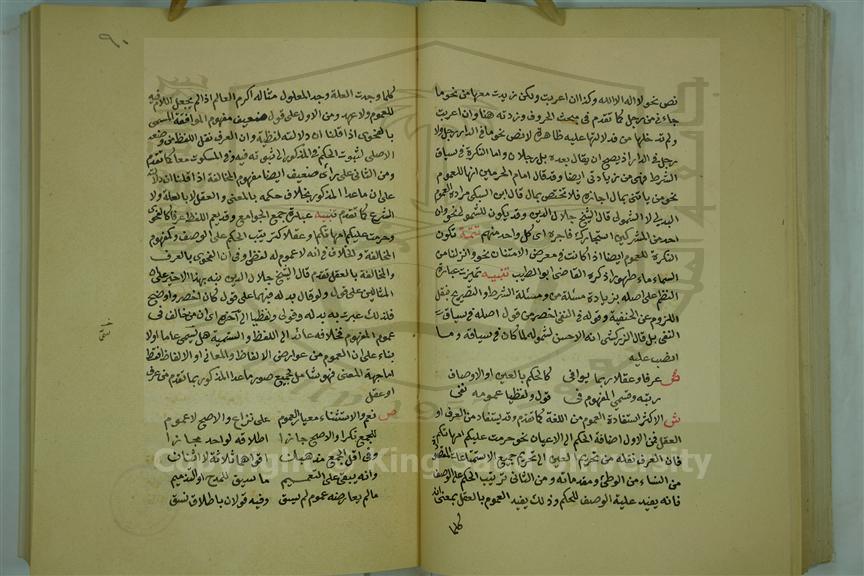 نص نحو لا اله الا الله وكذا ان اعربت ولكن زيدت معها من نحو ما
جاءني من رجل كما تقدم في مبحث الحروف وزدته هنا وان اعربت
ولم تدخلها من فدلالتها عليه ظاهرة لا نص نحو ما في الدار رجل ولا
رجل في الدار اذ يصح ان يقال بعده بل رجلان واما النكرة في سياق
الشرط فهي من زيادتي ايضا وقد قال امام الحرمين انها للعموم
نحو من يأتني بمال اجازه فلا تختص بمال قال ابن السبكي مراده العموم
البدلي لا الشمول قال الشيخ جلال الدين وقد يكون للشمول نحو وان
احد من المشركين استجارك فاجره اي كل واحد منهم تتمة تكون
النكرة للعموم ايضا اذا كانت في معرض الامتنان نحو وانزلنا من
السماء ماء طهورا ذكره القاضي ابو الطيب تنبيه تميزت عبارة
النظم على اصله بزيادة مسئلة من ومسئلة الشرط والتصريح بنقل
اللزوم عن الحنفية وقوله في النفي اخصر من قول اصله في سياق
النفي بل قال الزركشي انه الاحسن لشموله لما كان في سياقه وما
انصب عليه
ش عرفا وعقلا ربما يوافي كالحكم بالعين او الاوصاف
رتبه وقسمي المفهوم في قول ولفظيا عمومه نفي
ش الاكثر استفادة العموم من اللغة كما تقدم وقد يستفاد من العرف او
العقل فمن الاول اضافة الحكم الى الاعيان نحو حرمت عليكم امهاتكم
فان العرف نقله من تحريم العين الى تحريم جميع الاستمتاعات المقصودة
من النساء من الوطئ ومقدماته ومن الثاني ترتيب الحكم على الوصف
فانه يفيد علية الوصف للحكم وذلك يفيد العموم بالعقل بمعنى انه
كلما
٩٠
كلما وجدت العلة وجد المعلول مثاله اكرم العالم اذا لم يجعل اللام فيه
للعموم ولا عهد ومن الاول على قول ضعيف مفهوم الموافقة المسمى
بالفحوى اذا قلنا ان دلالته لفظية وان العرف نقل اللفظ من وضعه
الاصلي لثبوت الحكم في المذكور الى ثبوته فيه وفي المسكوت معا كما تقدم
ومن الثاني على رأي ضعيف ايضا مفهوم المخالفة اذا قلنا ان دلالته
على ان ما عدا المذكور بخلاف حكمه بالمعنى والعقل لا باللغة ولا
الشرع كما تقدم تنبيه عبارة جمع الجوامع وقد يعم اللفظ عرفا كالفحوى
وحرمت عليكم امهاتكم او عقلا كترتيب الحكم على الوصف وكمفهوم
المخالفة والخلاف في انه لا عموم له لفظي وفي ان الفحوى بالعرف
والمخالفة بالعقل تقدم قال الشيخ جلال الدين نبه بهذا الاخير على ان
المثالين على قول ولو قال بدله فيهما على قول كان اخصر واوضح
فلذلك عبرت به بدله وقولي ولفظيا الى آخره اي ان من خالف في
عموم المفهوم فخلافه عائد الى اللفظ والتسمية هل يسمى عاما او لا
بناء على ان العموم من عوارض الالفاظ والمعاني او الالفاظ فقط
اما جهة المعنى فهو شامل لجميع صور ما عدا المذكور بما تقدم من عرف
او عقل
ص نعم والاستثناء معيار العموم على نزاع والاصح لا عموم
للجمع نكرا والاصح جائزا اطلاقه لواحد مجازا
وفي اقل الجمع مذهبان اقواهما ثلاثة لا اثنان
وانه يبقى على التعميم ما سيق للمدح او التذميم
ما لم يعارضه عموم لم يسق وفيه قولان باطلاق نسق
Copyright © King Saud University